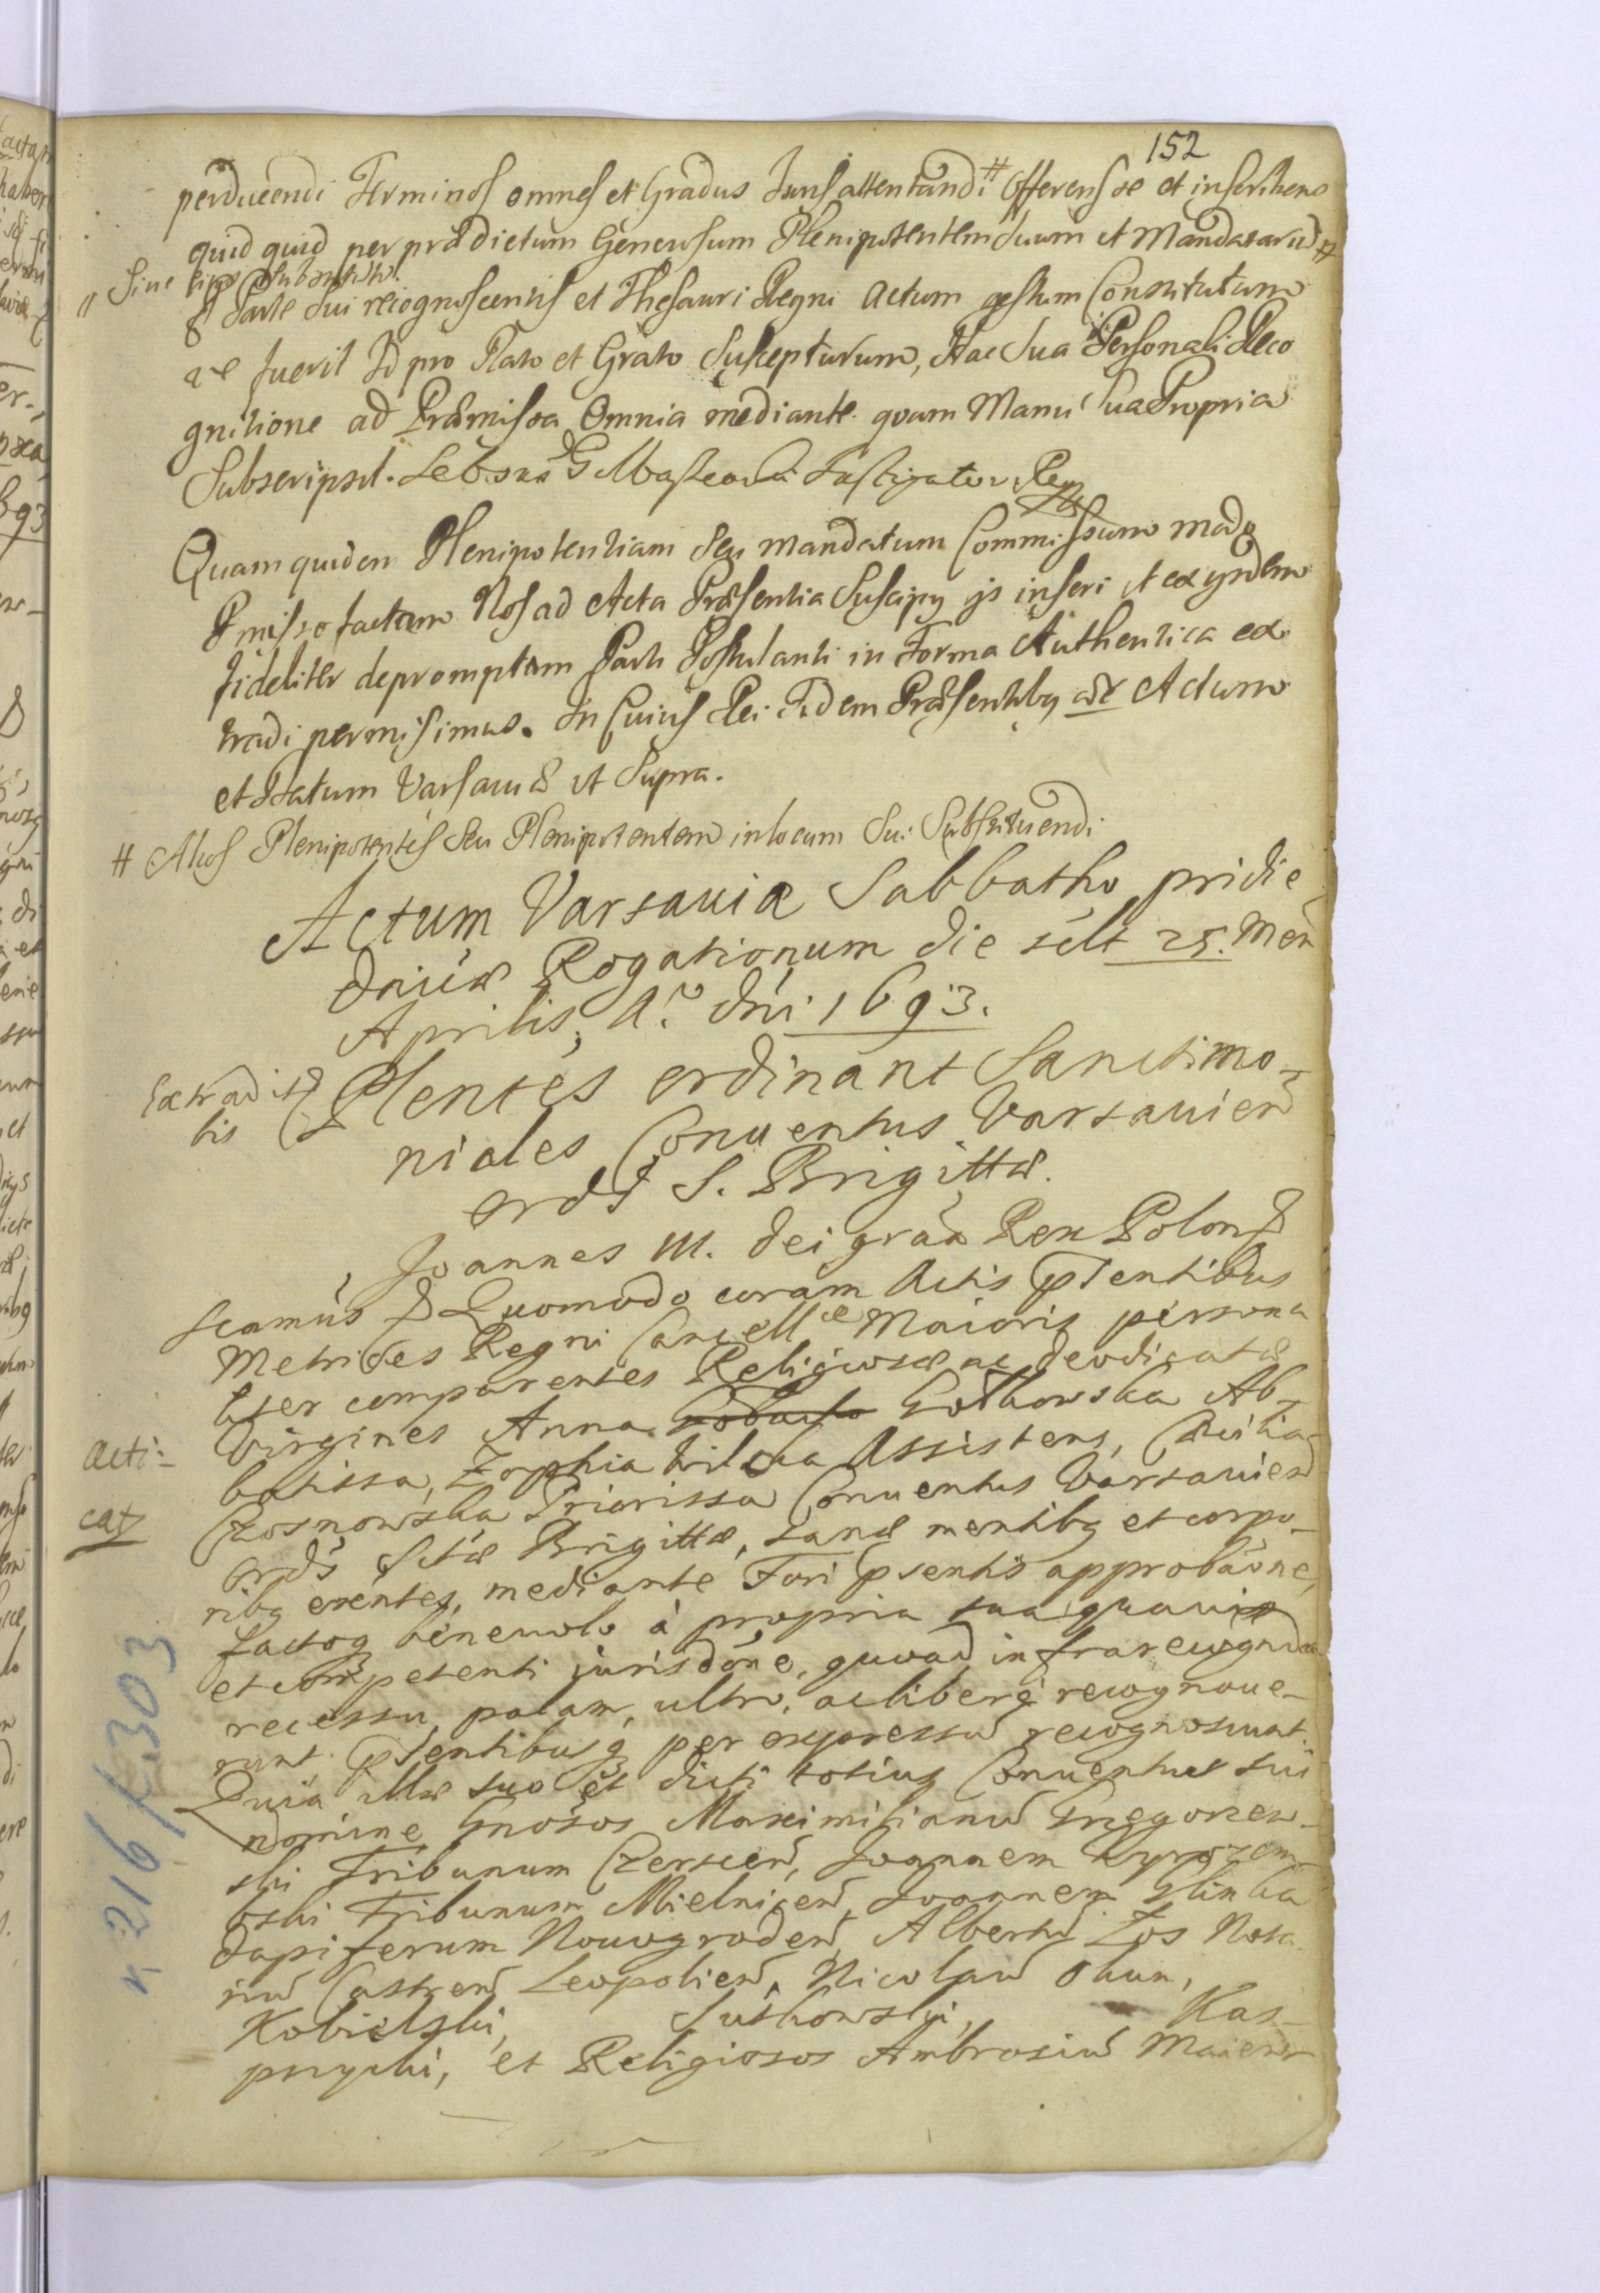 152
perducendi Terminos omnes et Gradus Juris attentandi # Offerens se et inscribens
quid quid per prædictum Generosum Plenipotentem Suum et Mandatariũ #
# Sive eius Substitutũ
ex Parte Sui recognoscentis et Thesauri Regni Actum gestum Constitutum
ve fuerit Id pro Rato et Grato Suscepturum, Hac Sua Personali Reco
gnitione ad Præmissa Omnia mediante. quam Manu Sua Propria
Subscripsit.
Quam quidem Plenipotentiam Seu Mandatum Commissum modo
Pmisso factum Nos ad Acta Præsentia Suscipi ijs inseri et ex ijsdem
fideliter depromptam Parti Postulanti in Forma Authentica ex
tradi permisimus. In Cuius Rei Fidem Præsentibq etc Actum
et Datum Varsaviæ ut Supra.
# Alios Plenipotentes Seu Plenipotentem in locum Sui Substituendi
Actum Varsaviæ Sabbatho pridie
Dnicæ Rogationum die sclt 25. Men
Aprilis, A.o dni 1693.
Extradit
tis
Plentes ordinant Sanctimo-
niales Conventus Varsavien
ordis S. Brigittæ.
Joannes III. Dei gratia Rex Polon
scamus Quomodo coram Actis Psentibus
Metrices Regni Cancellæ Maioris persona
liter comparentes Religiosæ ac devodicatæ
Virgines Anna Gotkowska Ab-
batissa, Zophia Wilska Assistens, Cæcilia
Acti-
cat
Czosnowska Priorissa Conventus Varsavien
ordis Sctæ Brigittæ, sanæ mentibq et corpo-
ribq exentes, mediante Fori psentis approbaone,
factoq benevolo à propria sua quavis
et competenti jurisdone, quoad infra recognda
recessu, palam, ultro, ac libere recognove-
runt. Psentibusq per expressũ recognoscunt.
Quia Illæ suo et dicti totius Conventus sui
nomine Gnosos Maximilianũ Gregorzew-
ski Tribunum Czerscen, Joannem Krypozem
bski Tribunum Mielnicen, Joannem Glinka
dapiferum Nowogroden, Albertũ Łos Nota
riũ Castren Leopolien, Nicolaũ Okun,
Kobielski, Sutkowski, Kas-
przycki, et Religiosos Ambrosiũ Maiere
k. 216/f. 303